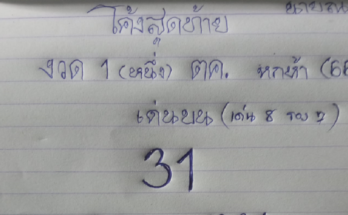 โค้งสุดท้าย
งวด 1 (หนึ่ง) ตค. หกห้า (66
เด่นบน (เด่น 8 รอง
31